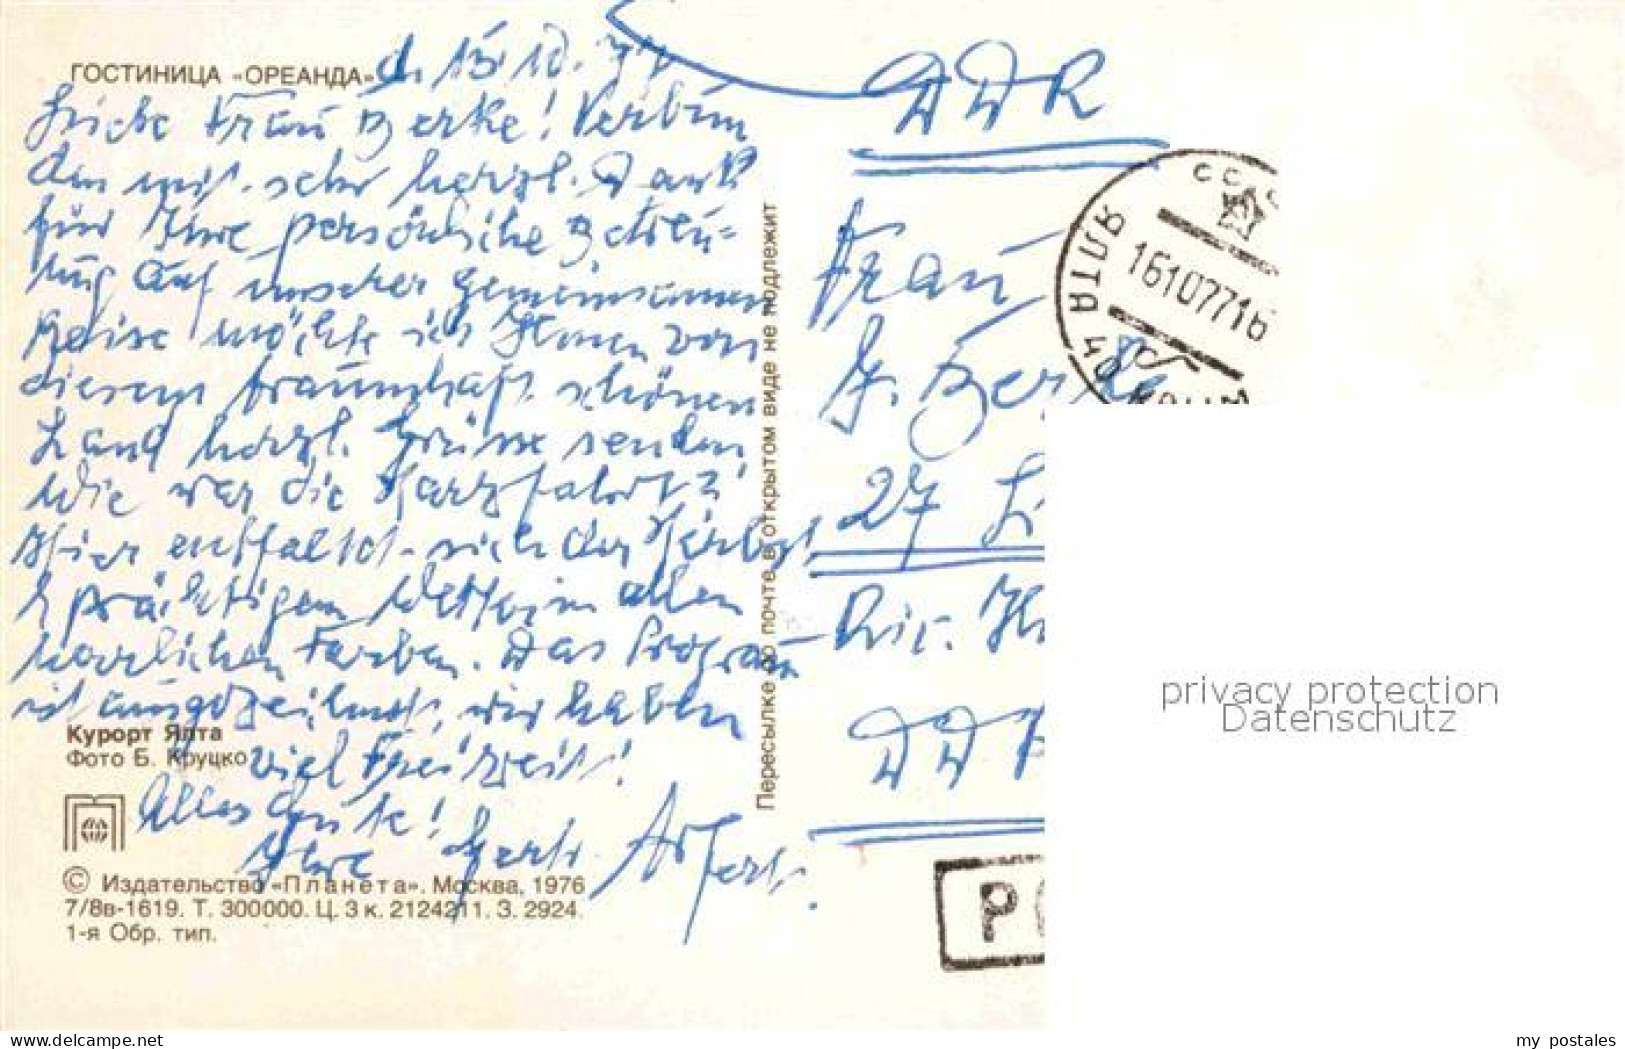 ГОСТИНИЦА «ОРЕАНДА» d. 15.10.77
Liebe Frau Berke! Verbun
den mit sehr herzl. Dank
für Ihre persönliche Betreu=
ung auf unserer gemeinsamen
Reise möchte ich Ihnen von
diesem traumhaft schönen
Land herzl. Grüsse senden.
Wie war die Harzfahrt?
Hier entfaltet sich der Herbst
b. prächtigem Wetter in allen
herrlichen Farben. Das Program
ist ausgezeichnet, wir haben
viel Freizeit!
Alles Gute!
Ihre Gert.
Курорт Ялта
Фото Б. Круцко
© Издательство «Планета». Москва, 1976
7/8в-1619. Т. 300000. Ц. 3 к. 2124211. З. 2924.
1-я Обр. тип.
Пересылке по почте в открытом виде не подлежит
DDR
Frau
G. Berke
27
DDR
СССР
ЯЛТА
16107716
privacy protection
Datenschutz
www.delcampe.net
my_postales